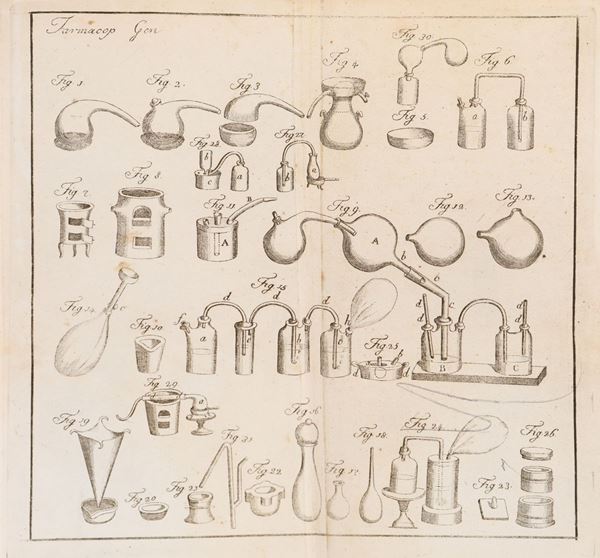 Farmacop Gen
Fig 1.
Fig 2.
Fig 3
Fig 4
Fig 30.
Fig 5.
Fig 6
a
b
Fig 28
b
c
a
Fig 27
b
c
Fig 7
Fig 8.
Fig 11
B
A
Fig 9.
A
b
b
c
Fig 12.
Fig 13.
Fig 14
c
Fig 10
Fig 15
d
d
d
f
a
e
b
h
Fig 25.
d
d
d
d
B
C
Fig 29
a
Fig 19
Fig 20
Fig 21
Fig 31
Fig 22
Fig 16
Fig 17
Fig 18.
Fig 24.
Fig 23.
Fig 26.